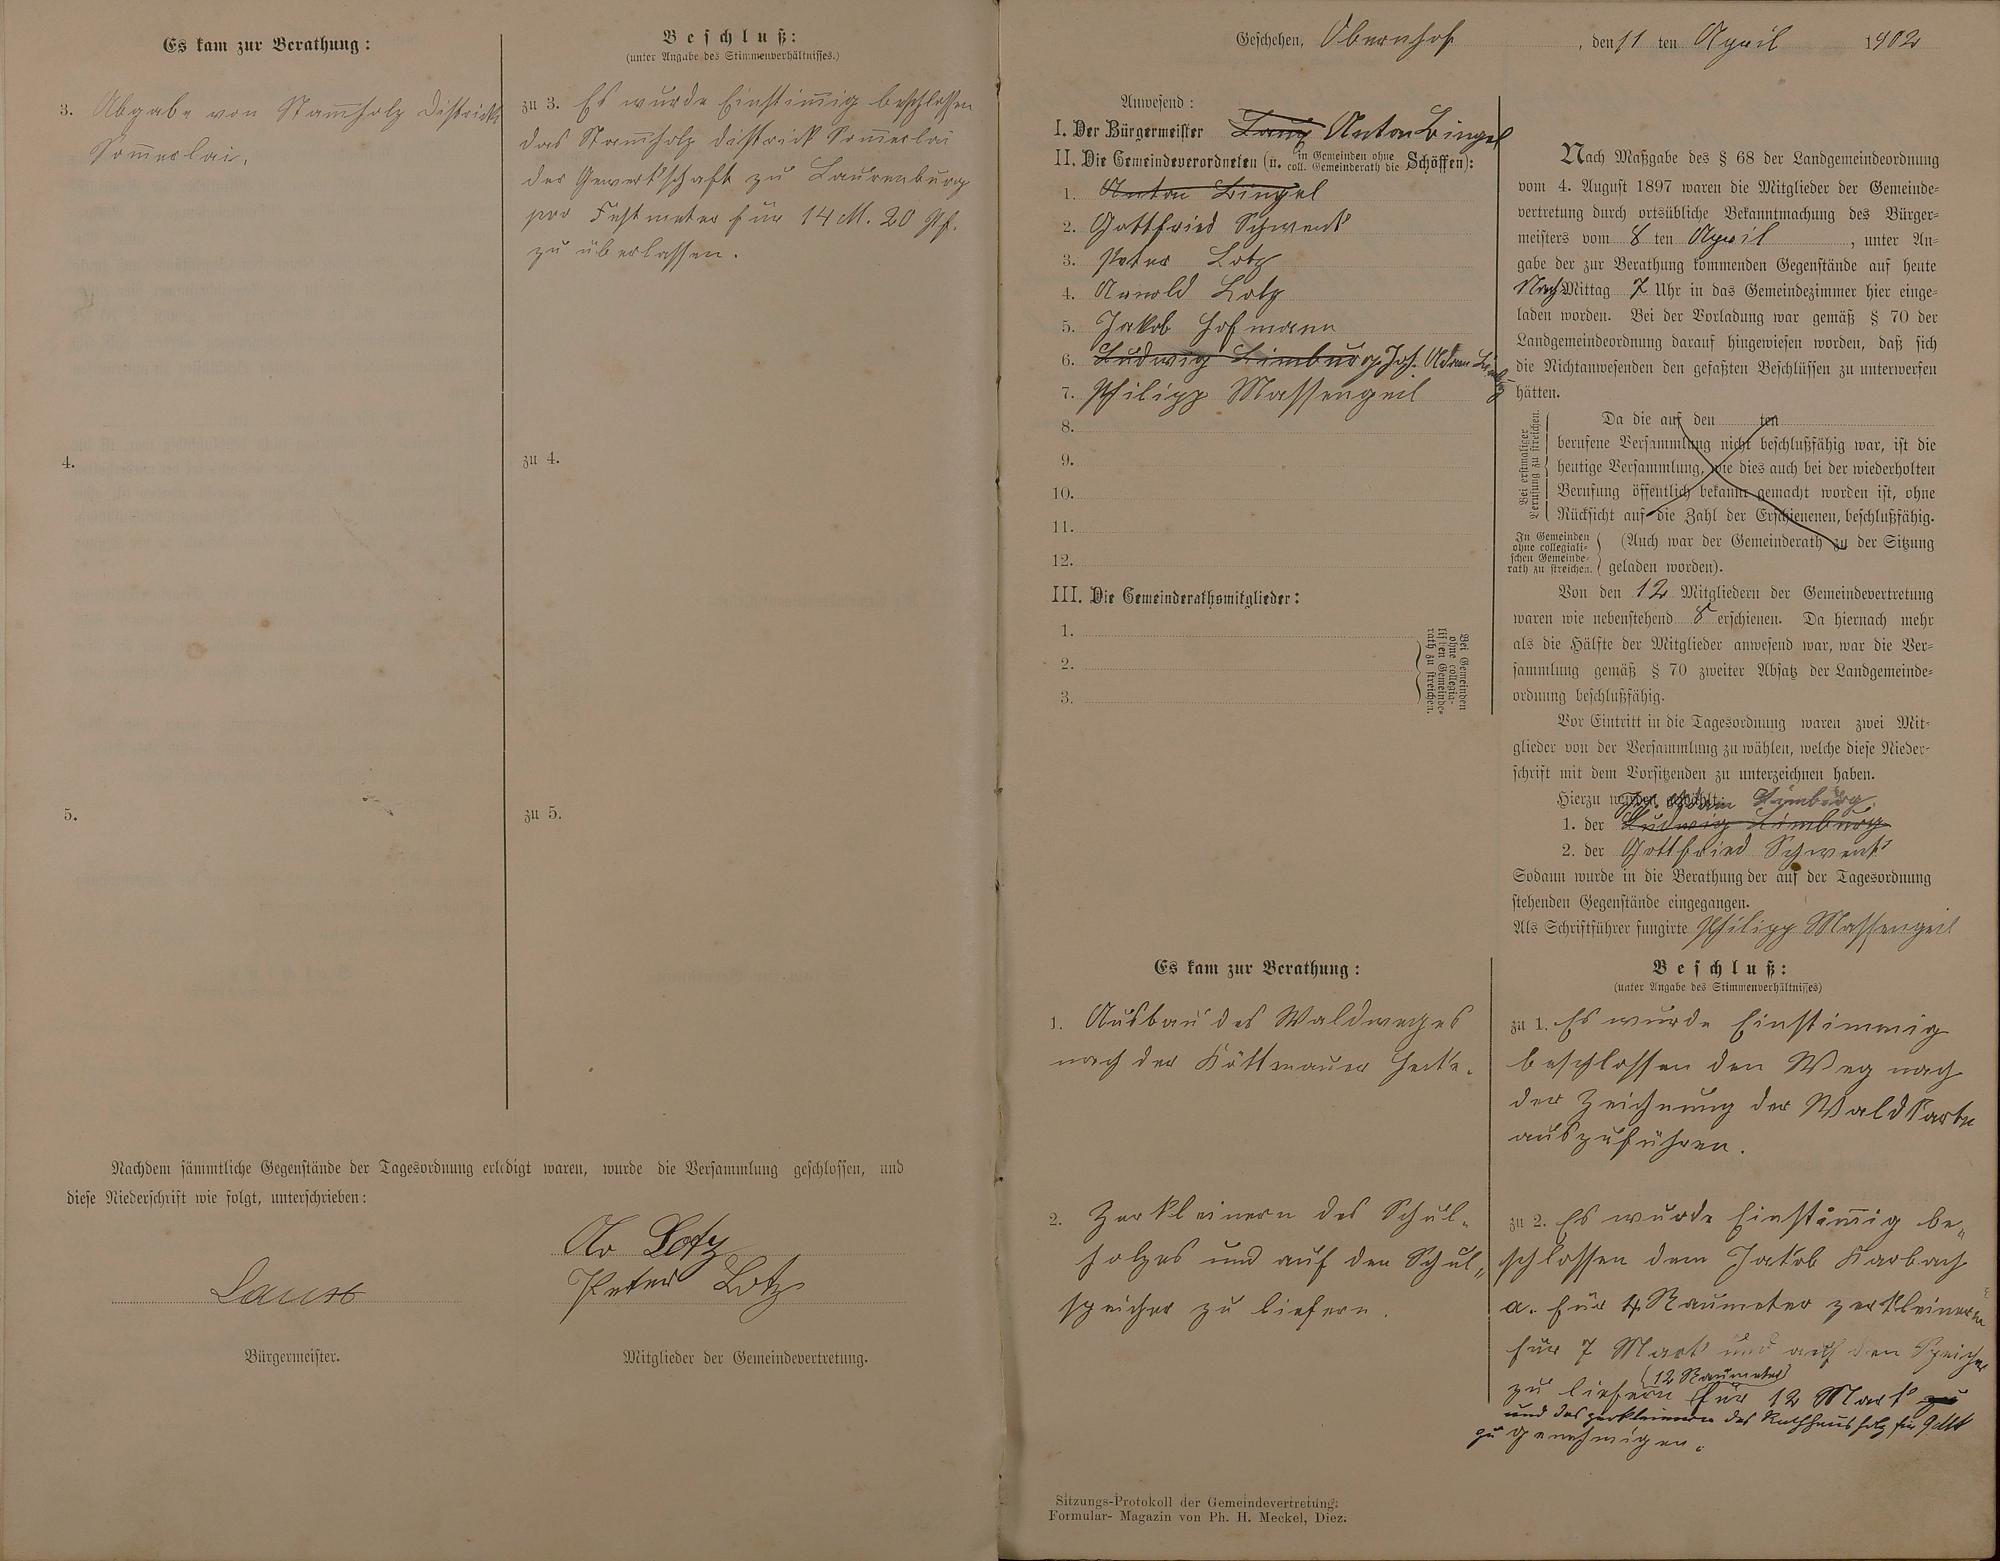 Es kam zur Berathung:
3. Abgabe von Stam̅holz District
Som̅erlai.
4.
5.
Beschluß:
(unter Angabe des Stimmenverhältnisses.)
zu 3. Es wurde Einstim̅ig beschlossen
das Stam̅holz District Som̅erlai
der Gewerkschaft zu Laurenburg
pro Festmeter für 14 M. 20 Pf.
zu überlassen.
zu 4.
zu 5.
Nachdem sämmtliche Gegenstände der Tagesordnung erledigt waren, wurde die Versammlung geschlossen, und
diese Niederschrift wie folgt, unterschrieben:
Ar Lotz
Peter Lotz
Bürgermeister.
Mitglieder der Gemeindevertretung.
Geschehen, Obernhof, den 11 ten April 1902
Anwesend:
I. Der Bürgermeister Anton Bingel
II. Die Gemeindeverordneten (u. in Gemeinden ohne coll. Gemeinderath die Schöffen):
1. Anton Bingel
2. Gottfried Schwenk
3. Peter Lotz
4. Arnold Lotz
5. Jakob Hofmann
6. Ludwig Limburg Joh. Adam Limburg
7. Philipp Massengeil
8.
9.
10.
11.
12.
III. Die Gemeinderathsmitglieder:
1.
2.
3.
Bei Gemeinden
ohne collegia-
lischen Gemeinde-
rath zu streichen.
Nach Maßgabe des § 68 der Landgemeindeordnung
vom 4. August 1897 waren die Mitglieder der Gemeinde-
vertretung durch ortsübliche Bekanntmachung des Bürger-
meisters vom 8 ten April, unter An-
gabe der zur Berathung kommenden Gegenstände auf heute
Nach Mittag 7 Uhr in das Gemeindezimmer hier einge-
laden worden. Bei der Vorladung war gemäß § 70 der
Landgemeindeordnung darauf hingewiesen worden, daß sich
die Nichtanwesenden den gefaßten Beschlüssen zu unterwerfen
hätten.
Bei erstmaliger
Berufung zu streichen.
Da die auf den ten
berufene Versammlung nicht beschlußfähig war, ist die
heutige Versammlung, wie dies auch bei der wiederholten
Berufung öffentlich bekannt gemacht worden ist, ohne
Rücksicht auf die Zahl der Erschienenen, beschlußfähig.
In Gemeinden
ohne collegiali-
schen Gemeinde-
rath zu streichen.
(Auch war der Gemeinderath zu der Sitzung
geladen worden).
Von den 12 Mitgliedern der Gemeindevertretung
waren wie nebenstehend 8 erschienen. Da hiernach mehr
als die Hälfte der Mitglieder anwesend war, war die Ver-
sammlung gemäß § 70 zweiter Absatz der Landgemeinde-
ordnung beschlußfähig.
Vor Eintritt in die Tagesordnung waren zwei Mit-
glieder von der Versammlung zu wählen, welche diese Nieder-
schrift mit dem Vorsitzenden zu unterzeichnen haben.
Hierzu wurden gewählt:
Joh. Adam Limburg.
1. der Ludwig Limburg
2. der Gottfried Schwenk
Sodann wurde in die Berathung der auf der Tagesordnung
stehenden Gegenstände eingegangen.
Als Schriftführer fungirte Philipp Massengeil
Es kam zur Berathung:
1. Ausbau des Waldweges
nach der Hecke.
2. Zerkleinern des Schul-
holzes und auf den Schul-
speicher zu liefern.
Beschluß:
(unter Angabe des Stimmenverhältnisses)
zu 1. Es wurde Einstimmig
beschlossen den Weg nach
der Zeichnung der Waldkarte
auszuführen.
zu 2. Es wurde Einstim̅ig be-
schlossen dem Jakob Karbach
a. für 4 Raumeter zerkleinern
für 7 Mark und auf den Speicher
zu liefern (12 Raumeter) für 12 Mark zu
und das zerkleinern des Rathhausholz für 9 M
zu genehmigen.
Sitzungs-Protokoll der Gemeindevertretung.
Formular-Magazin von Ph. H. Meckel, Diez.